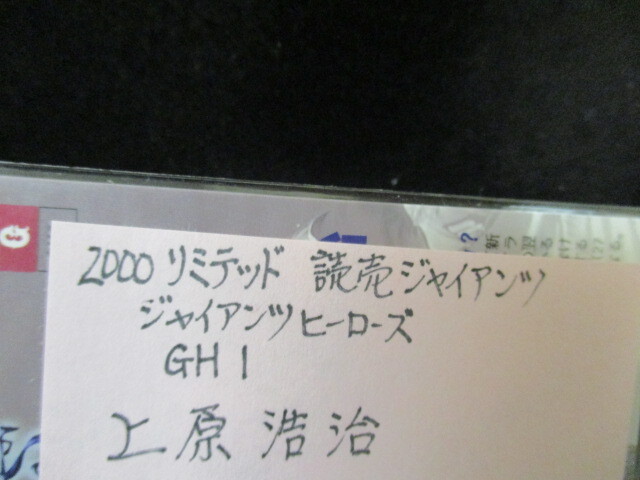 2000 リミテッド 読売ジャイアンツ
ジャイアンツヒーローズ
GH1
上原浩治
Q